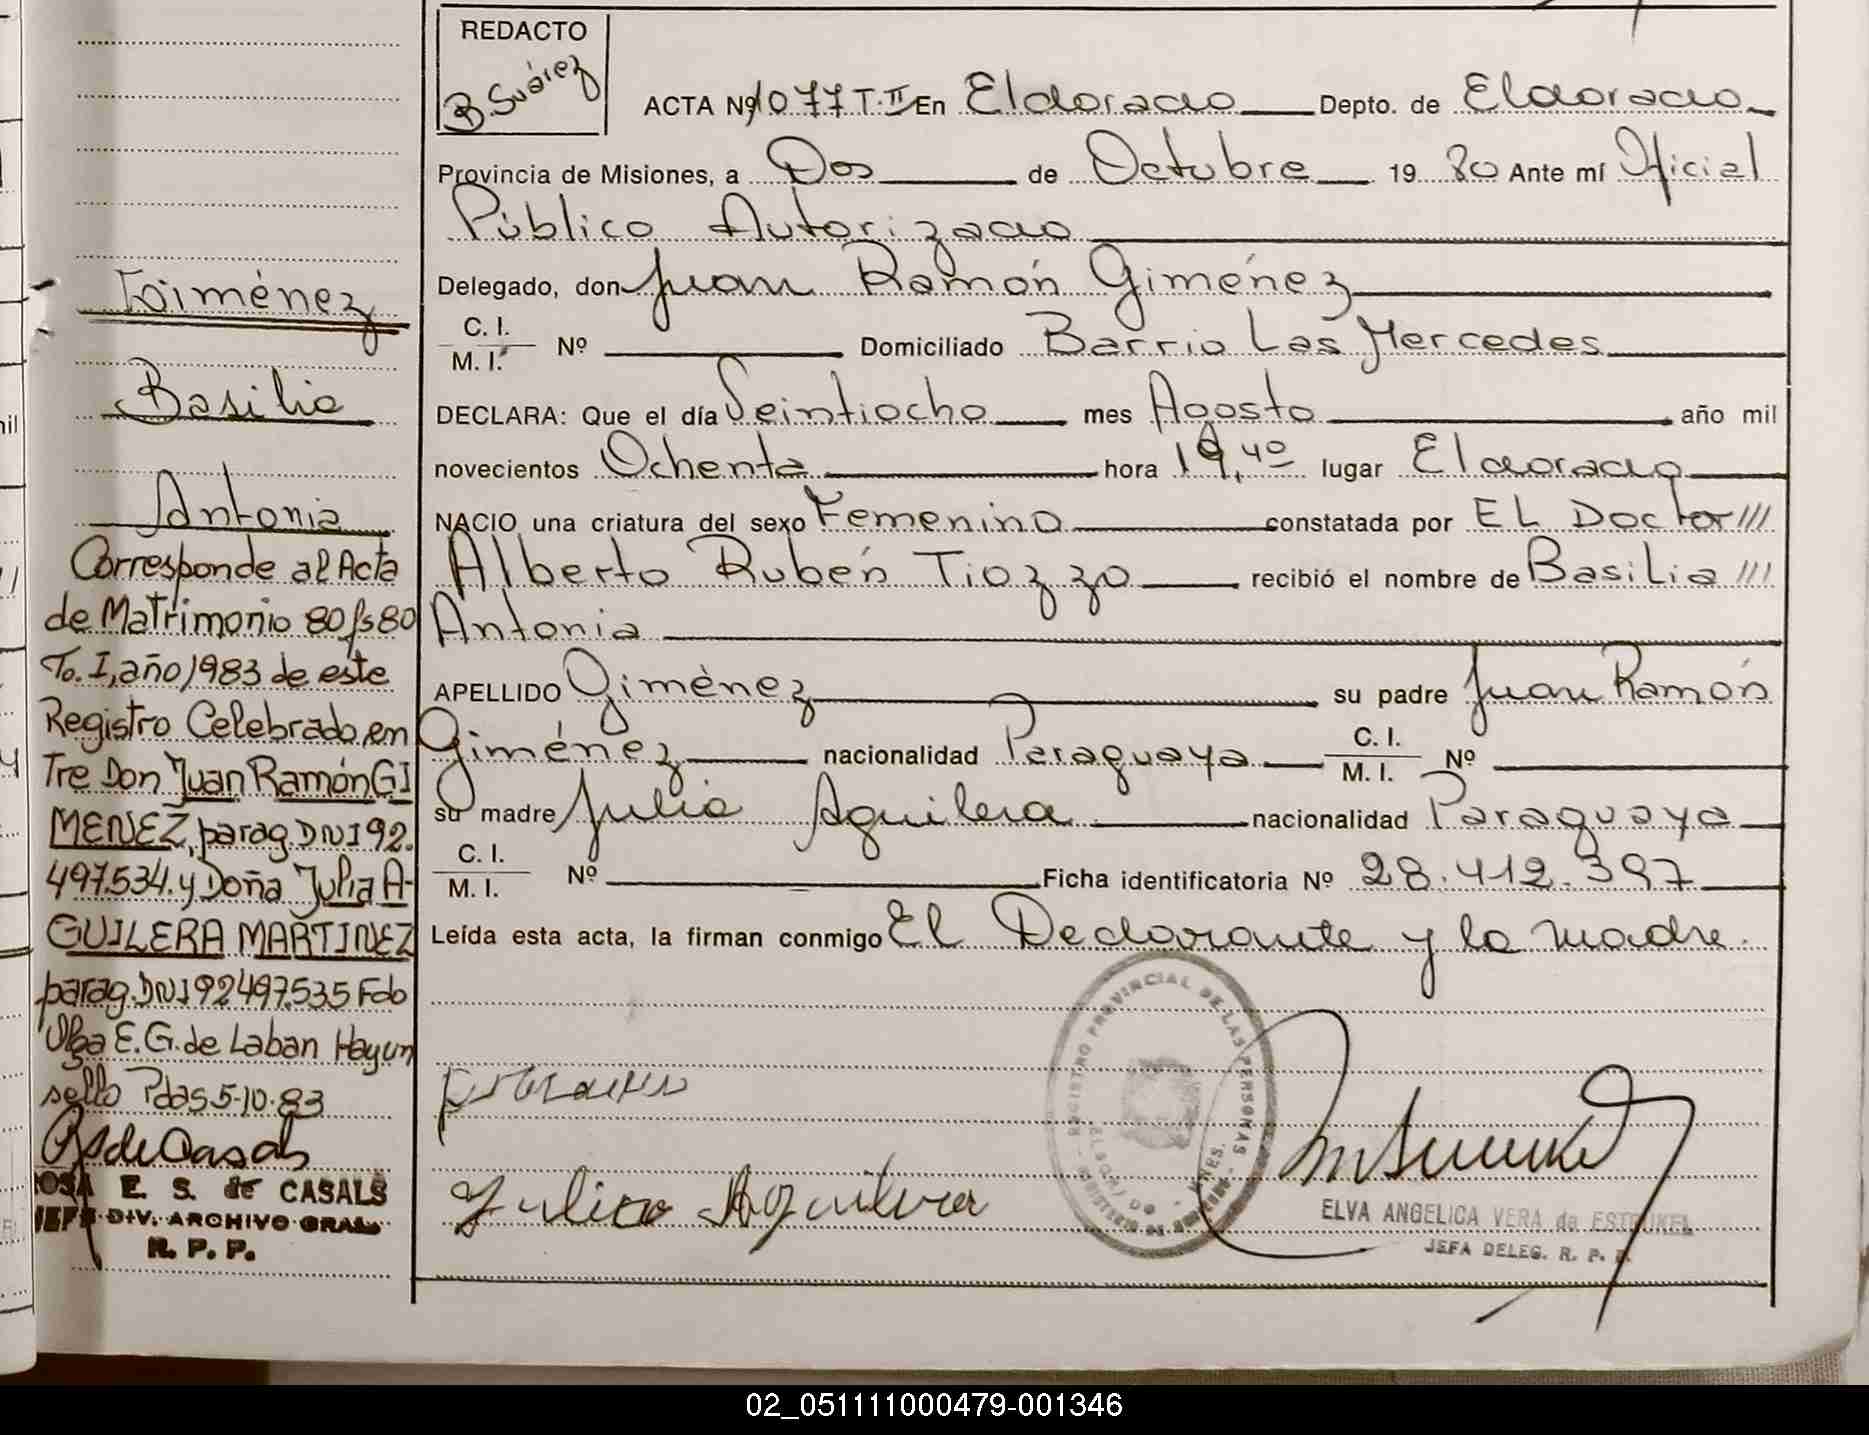 REDACTO
B. Suárez
ACTA Nº 1077 T.II En Eldorado Depto. de Eldorado
Provincia de Misiones, a Dos de Octubre 19 80 Ante mí Oficial
Público Autorizado
Delegado, don Juan Ramón Giménez
C. I.
M. I. Nº Domiciliado Barrio Las Mercedes
DECLARA: Que el día Veintiocho mes Agosto año mil
novecientos Ochenta hora 19,40 lugar Eldorado
NACIO una criatura del sexo Femenino constatada por EL Doctor ///
Alberto Rubén Tiozzo recibió el nombre de Basilia ///
Antonia
APELLIDO Giménez su padre Juan Ramón
Giménez nacionalidad Paraguaya C. I.
M. I. Nº
su madre Julia Aguilera nacionalidad Paraguaya
C. I.
M. I. Nº Ficha identificatoria Nº 28.412.397
Leída esta acta, la firman conmigo El Declarante y la madre.
Julia Aguilera
REGISTRO PROVINCIAL DE LAS PERSONAS
ELVA ANGELICA VERA de ESTRUKEL
JEFA DELEG. R. P. P.
Giménez
Basilia
Antonia
Corresponde al Acta
de Matrimonio 80 fs 80
To. I, año 1983 de este
Registro Celebrado en
Tre Don Juan Ramón GI
MENEZ, parag. DNI 92.
497.534. y Doña Julia A-
GUILERA MARTINEZ
parag. DNI 92497.535 Fdo
Olga E. G. de Laban Hay un
sello Pdas 5-10-83
RS de Casals
ROSA E. S. de CASALS
JEFE DIV. ARCHIVO GRAL.
R. P. P.
02_051111000479-001346